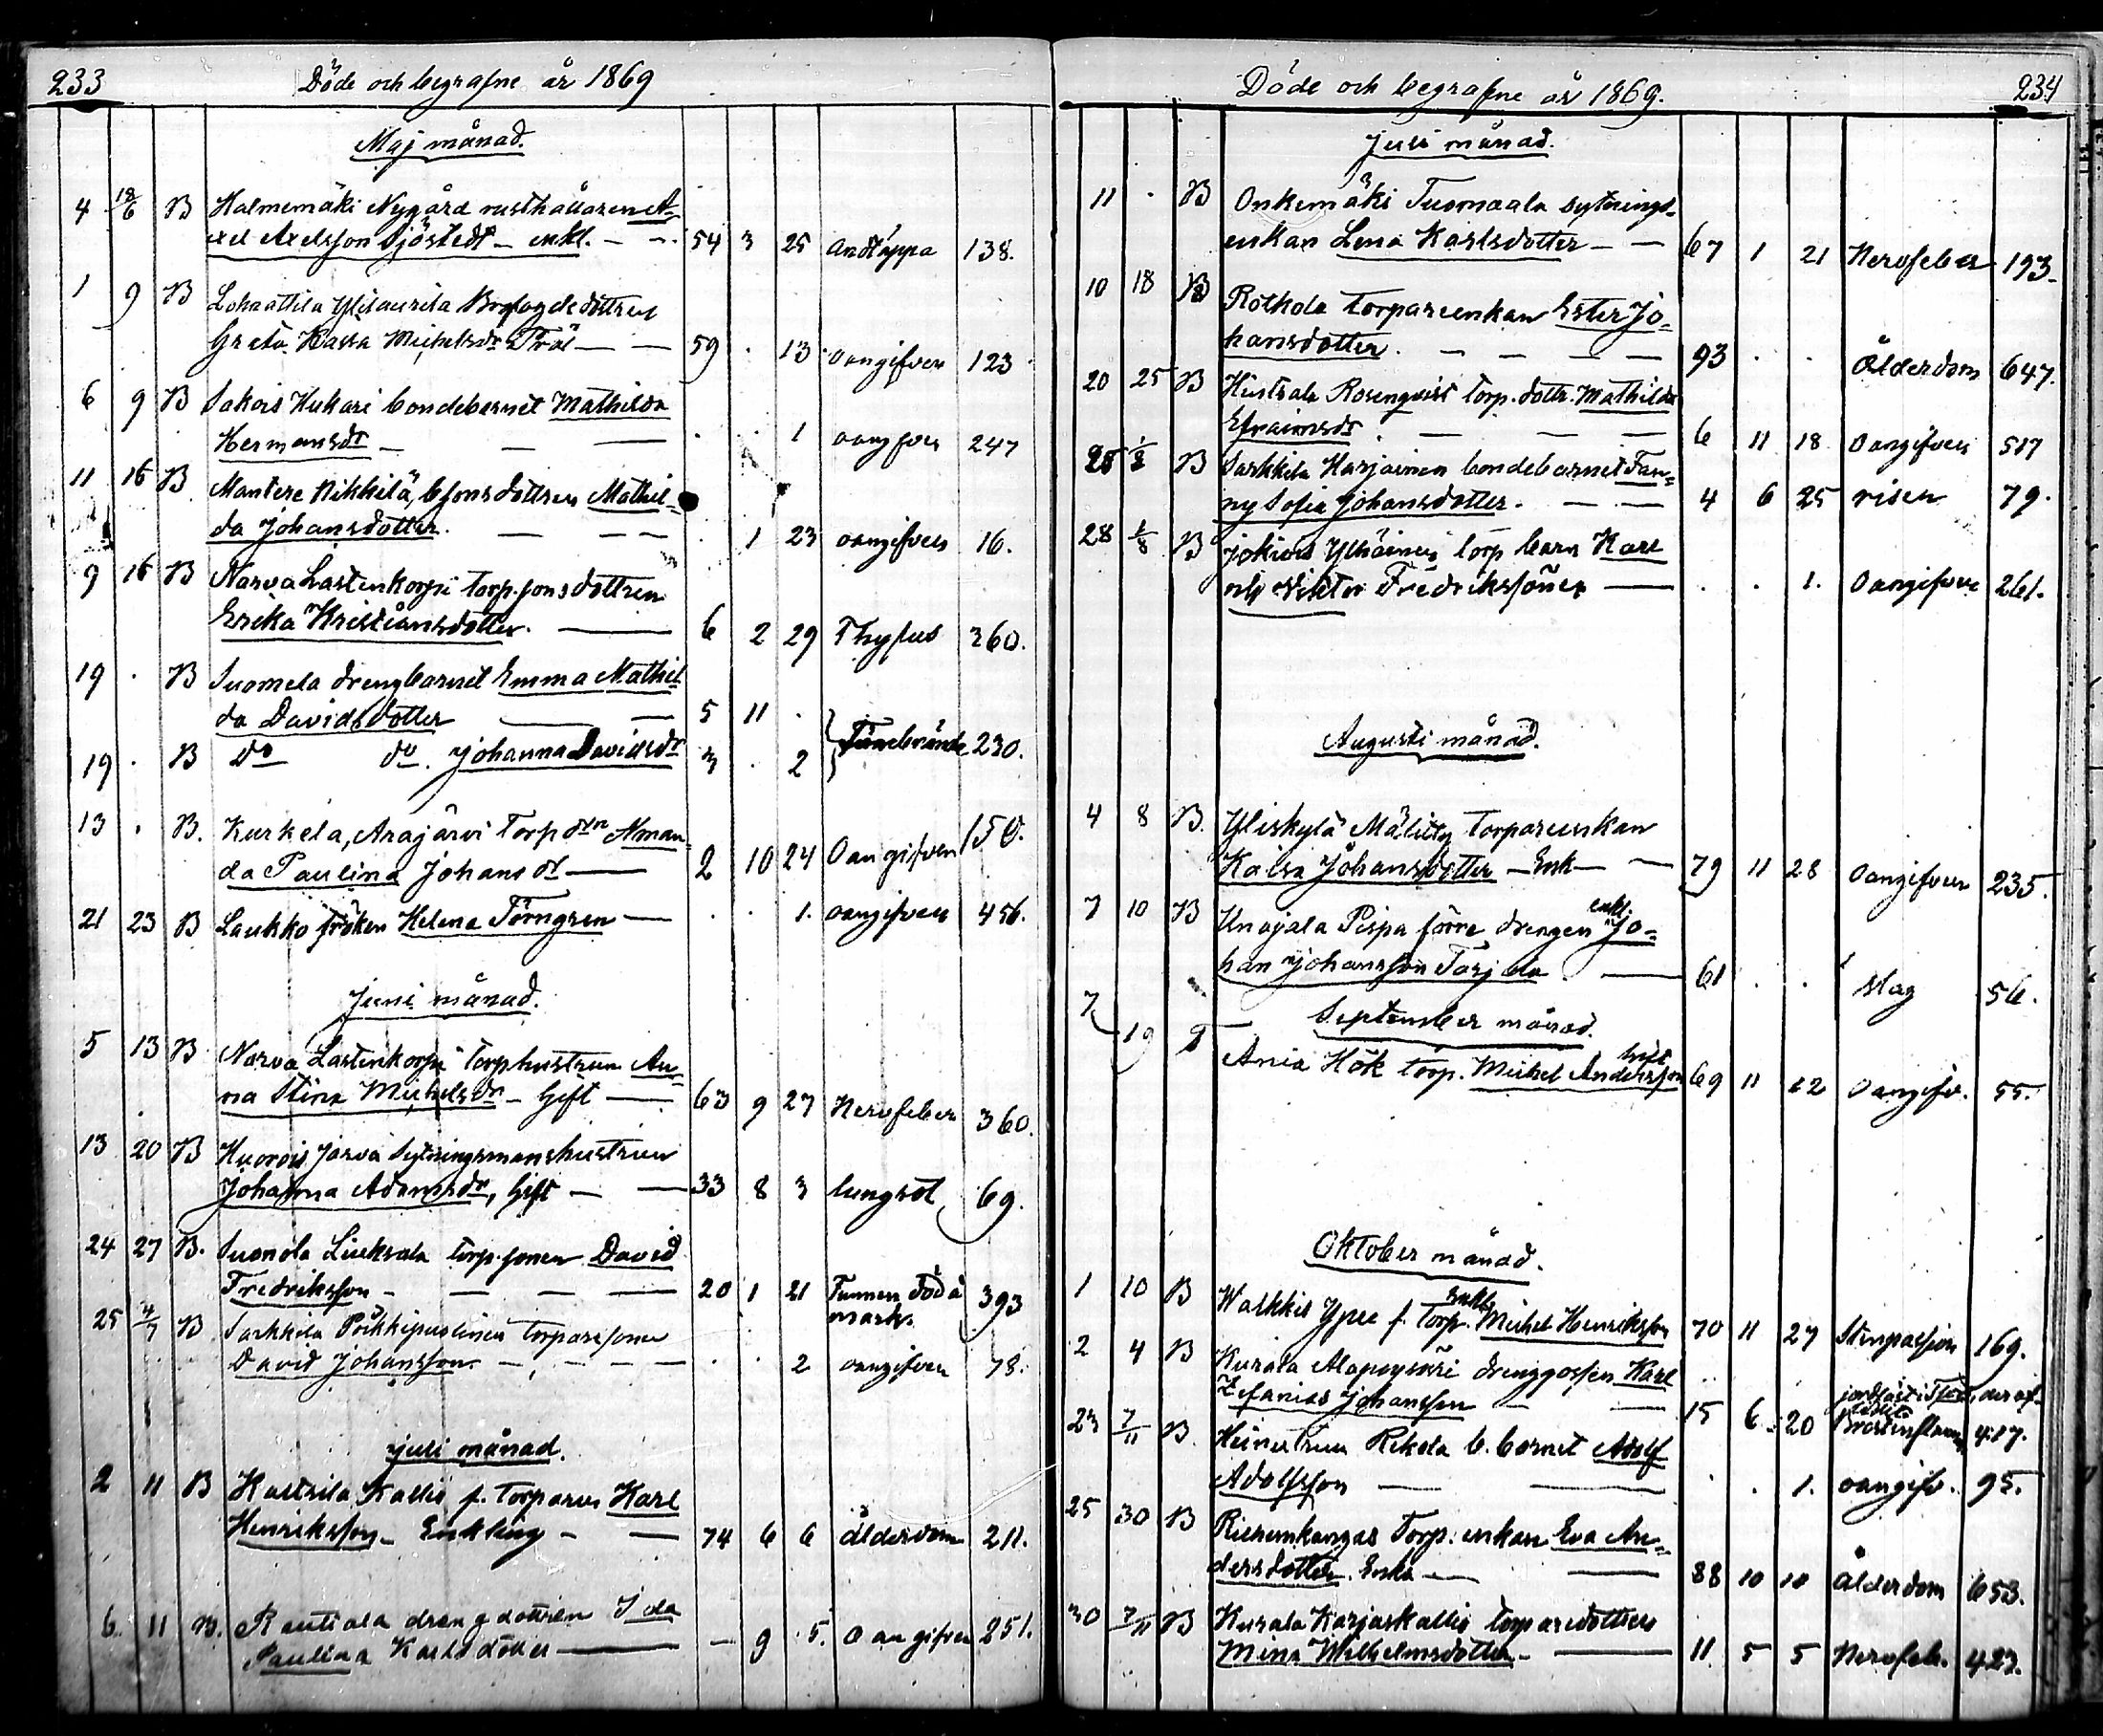 233 Döde och begrafne år 1869
Maj månad.
4 18/6 B Halmemäki Nygård rusthållaren A-
xel Axelsson Sjöstedt - enkl. - - 54 3 25 andtäppa 138.
1 9 B Lohaattila Ylitaurila
Greta Kassa Michelsdr - - 59 . 13 oangifven 123
6 9 B Sakois Kukari bondebarnet Mathilda
Hermansdr - - - . . 1 oangifven 247
11 16 B Mantere Nikkilä, bsonsdottren Mathil-
da Johansdotter. - - - . 1 23 oangifven 16.
9 16 B Narva Lastenkorpi torp.sonsdottren
Erika Kristiansdotter. - 6 2 29 Thyfus 360.
19 . B Suomela drengbarnet Emma Mathil
da Davidsdotter - - 5 11 .
19 . B Do do. Johanna Davidsdr 3 . 2 230.
13 . B. Kurkela, Arajärvi Torp dtrn Aman
da Paulina Johansdt - 2 10 24 Oangifven 150.
21 23 B Laukko fröken Helena Törngren - . . 1. oangifven 456.
Juni månad.
5 13 B Narva Lastenkorpi Torphustrun An-
na Stina Michelsdr - Gift - 63 9 27 Nervfeber 360.
13 20 B Huorois Jarva Sytningsmanshustrun
Johanna Adamsdr, Gift - - 33 8 3 lungsot 69.
24 27 B. Suonola Liuksala torp.sonen David
Fredriksson - - - - 20 1 21 Funnen död å
marken 393
25 4/7 B Sarkkila Pökkipuslinen torparesonen
David Johansson. - - - - . . 2 oangifven 78.
Juli månad.
2 11 B Kastsila Kallio f. Torparen Karl
Henriksson - Enkling - - 74 6 6 ålderdom 211.
6. 11 B. Rautiala drengdottren Ida
Paulina Karlsdotter - - 9 5. oangifven 251.
Döde och begrafne år 1869. 234
Juli månad.
11 . B Onkemäki Tuomaala sytnings-
enkan Lena Karlsdotter - - 67 1 21 Nervfeber 193.
10 18 B Rotkola torpareenkan Ester Jo-
hansdotter. - - - - 93 . . Ålderdom 647.
20 25 B Hustrala Rosenqvist torp.dottr. Mathilda
Efraimsdr. - - - 6 11 18 Oangifven 517
25 1/8 B Sarkkila Harjainen bondebarnet Fan-
ny Sofia Johansdotter. - - 4 6 25 risen 79.
28 1/8 B Jokiois Ylhäinen torp barn Karl
och Viktor Fredrikssöner - . . 1. Oangifven 261.
Augusti månad.
4 8 B. Yliskylä Mälitty torpareenkan
Kaisa Johansdotter - Enk - - 79 11 28 Oangifven 235.
7 10 B Unajala Pispa förre drengen enkl. Jo-
han Johansson Tarjala - 61 . . slag 56.
September månad.
7 19 T Ania Hök torp. Michel Andersson gift 69 11 22 Oangifv. 55.
Oktober månad.
1 10 B Walkkis Ypee f. Torp. enkl. Michel Henriksson 70 11 27 Stenpassion 169.
2 4 B Kurala Alapoyskäri drenggossen Karl
Zefanias Johansson - - 15 6 20 417.
23 7/11 B. Heinestrun Rekola b. barnet Adolf
Adolfsson - - . . 1. oangifv. 95.
25 30 B Riihenkangas Torp. enkan Eva An-
dersdotter. Enka - - 88 10 10 Ålderdom 653.
30 7/11 B Kurala Karjaskallio torparedottren
Mina Wilhelmsdotter - - 11 5 5 Nervfeb. 423.